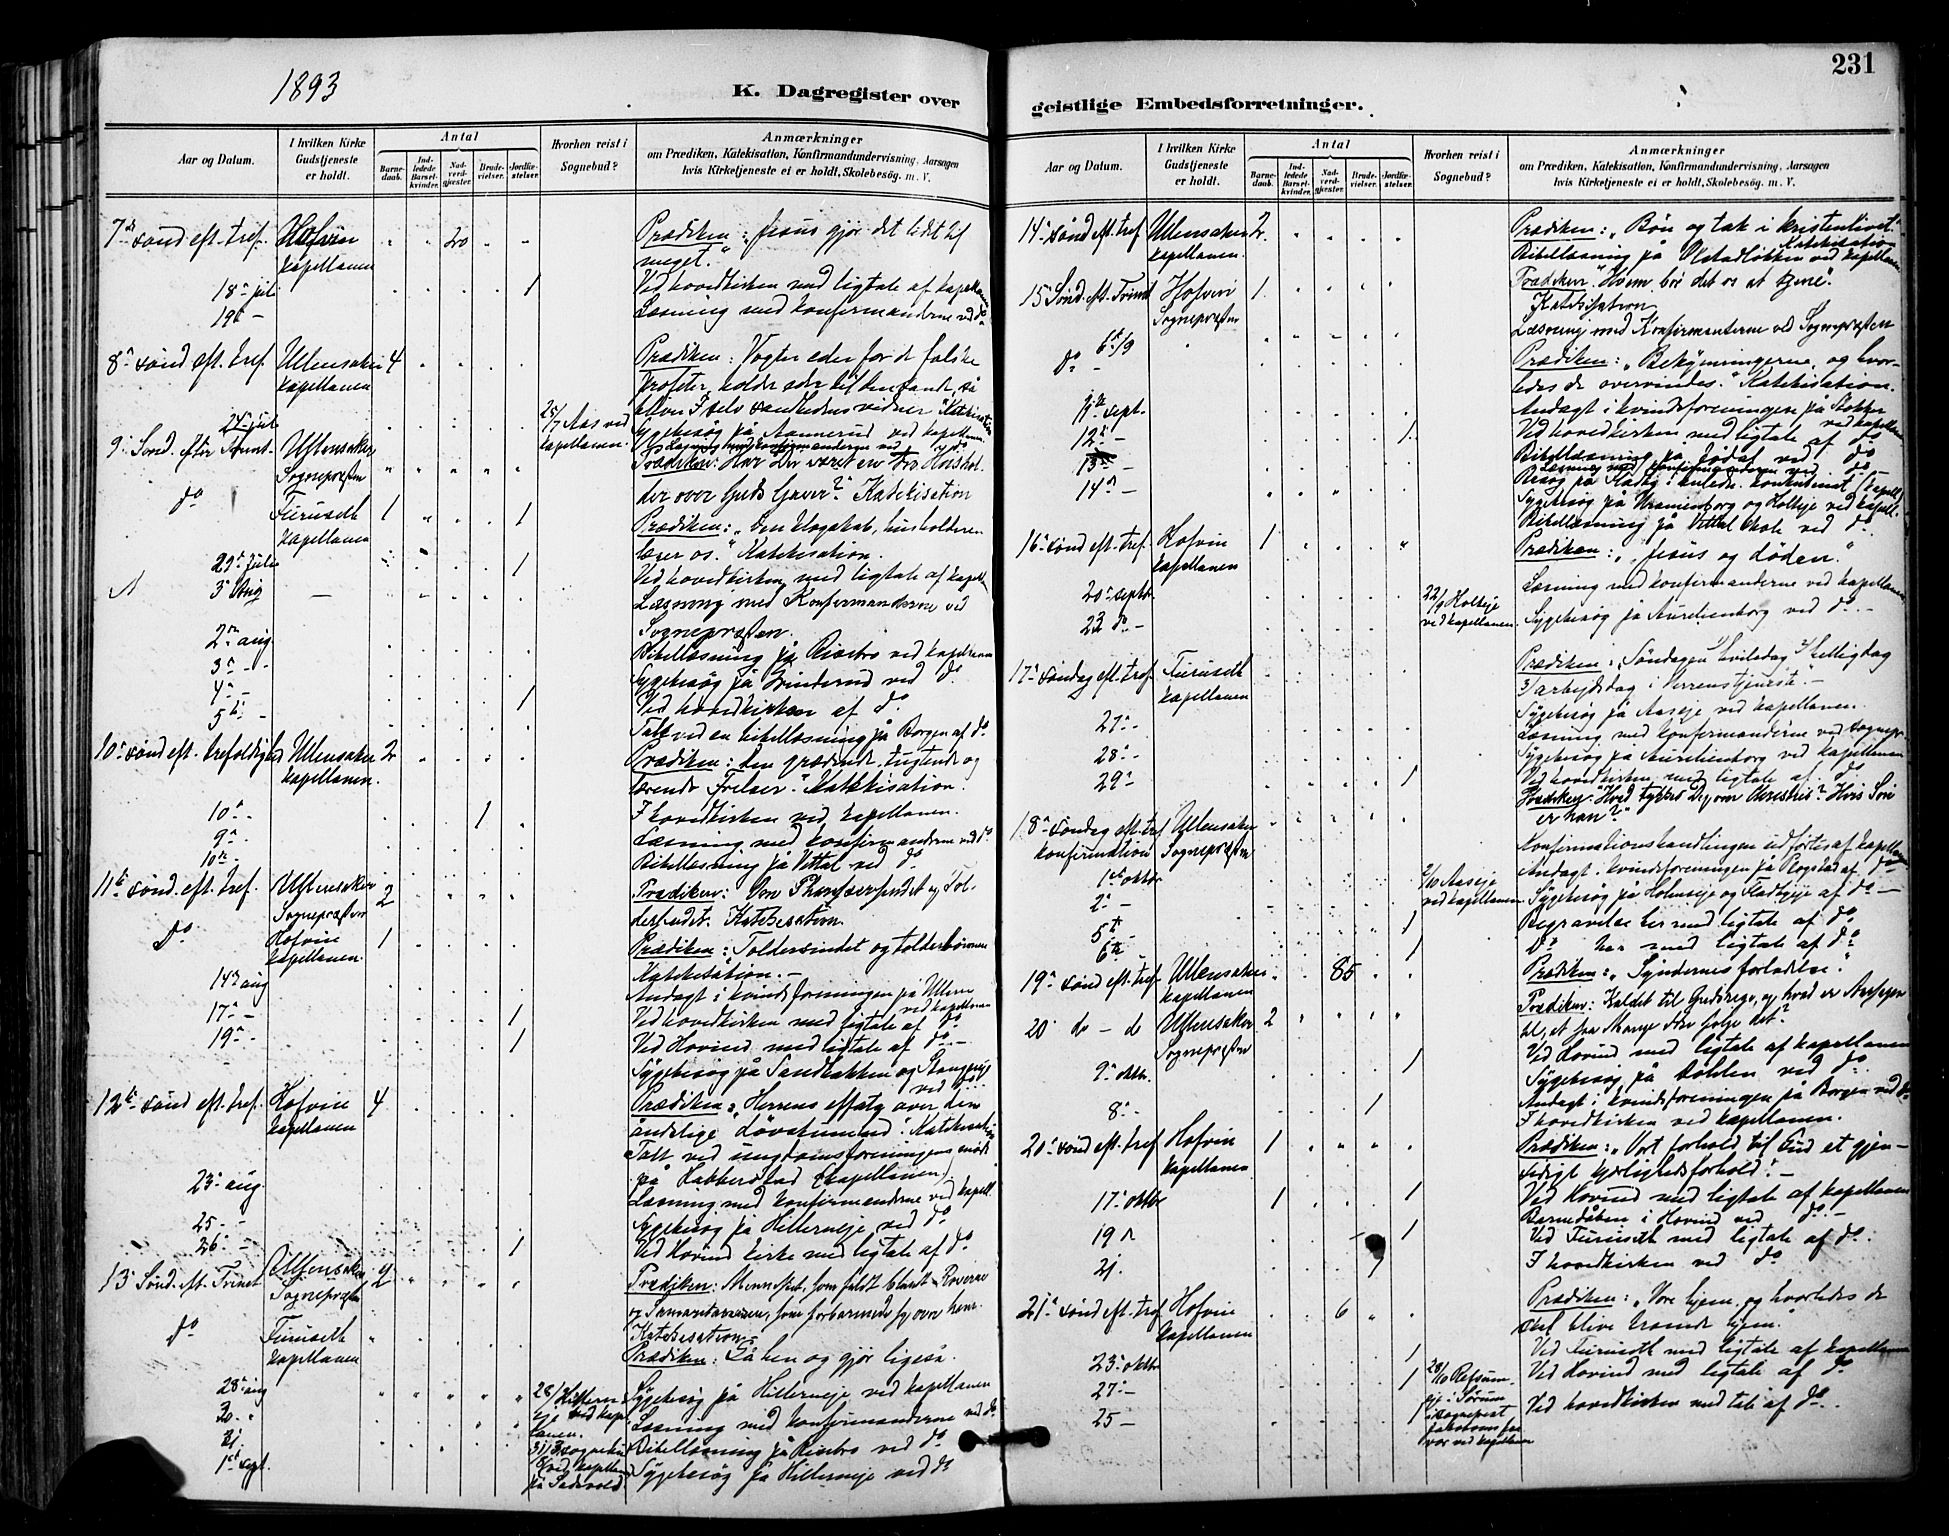 1893
231
K. Dagregister over
geistlige Embedsforretninger.
Aar og Datum.
I hvilken Kirke
Gudstjeneste
er holdt.
Antal
Barne-
daab.
Ind-
ledede
Barsel-
kvinder.
Nad-
verd-
gjester.
Brude-
vielser.
Jordfæ-
stelser.
Hvorhen reist i
Sognebud?
Anmærkninger
om Prædiken, Katekisation, Konfirmandundervisning, Aarsagen
hvis Kirketjeneste ei er holdt, Skolebesøg. m. V.
7de sønd eft. tref. Hofvin 20 Prædiken: "Jesus gjør det lidet til
kapellanen meget."
18de juli 1 Ved hovedkirken med ligtale af kapellanen
19de - Læsning med konfirmanderne ved do
8de sønd eft. tref. Ullensaker 4 Prædiken: Vogter eder for de falske
kapellanen profeter, holder eder til den sande, så
bliver I selv sandhedens vidner. Katekisation
24de juli 25/7 Aas ved kapellanen. Sygebesøg på ved kapellanen
Læsning med konfirmanderne ved do
9de Sønd. efter Trinit. Ullensaker Prædiken: Har Du været en tro Hushol-
Sognepræsten der over Guds Gaver? Katekisation
do Furuseth 1 1 Prædiken: "Den klogskab, husholderen
kapellanen lærer os." Katekisation.
29de juli 1 Ved hovedkirken med ligtale af kapellanen
3de Aug Læsning med Konfirmanderne ved
Sognepræsten.
2den aug. Bibellæsning på ved kapellanen
3de - - Sygebesøg på ved do
4de - 1 Ved hovedkirken af do
5te - Talt ved en bibellæsning på Borgen af do
10de sønd eft. trefoldighed Ullensaker 2 Prædiken: Den grædende, tugtende og
kapellanen. lærende Frelser. Katekisation.
10de - 1 I hovedkirken ved kapellanen.
9de - Læsning med konfirmanderne ved do
10de - Bibellæsning på Vittal ved do
11te sønd. eft. tref. Ullensaker 2 Prædiken: Om Phariseersindet og Tol-
Sognepræsten dersindet. Katekisation.
do Hofvin 1 Prædiken: "Toldersindet og tolderbønnen
kapellanen. Katekisation. -
14de aug Andagt i kvindeforeningen på ved kapellanen
17de - 1 Ved hovedkirken med ligtale af do
19de - 1 Ved Hovind med ligtale af do -
Sygebesøg på Sandbakken og ved do
12te sønd eft. tref. Hofvin 4 Prædiken: "Herrens effata over den
kapellanen åndelige døvstumme". Katekisation
Talt ved ungdomsforeningens møde
på Habberstad (kapellanen)
23de aug. Læsning med konfirmanderne ved kapell.
25 - - Sygebesøg på Hilterneje ved do
26 - - 1 Ved Hovind kirke med ligtale af do
13de Sønd. eft. Trinit Ullensaker 2 Prædiken: Mennesket, som faldt blandt Røverne
Sognepræsten og Samaritanen, som forbarmede sig over ham.
Katekisation.
do Furuseth Prædiken: Gå hen og gjør ligeså.
kapellanen
28de aug 28/8 ved kapellanen. Sygebesøg på Hilterneje ved kapellanen
30 - Læsning med konfirmanderne ved do
31 31/8 sognebud ved kapellanen Bibellæsning på ved do
1ste sept. Sygebesøg på Hilterneje ved do
Aar og Datum.
I hvilken Kirke
Gudstjeneste
er holdt.
Antal
Barne-
daab.
Ind-
ledede
Barsel-
kvinder.
Nad-
verd-
gjester.
Brude-
vielser.
Jordfæ-
stelser.
Hvorhen reist i
Sognebud?
Anmærkninger
om Prædiken, Katekisation, Konfirmandundervisning, Aarsagen
hvis Kirketjeneste ei er holdt, Skolebesøg. m. V.
14de sønd eft. tref Ullensaker 2 Prædiken: "Bøn og tak i kristenlivet."
kapellanen. Katekisation
Bibellæsning på Olstadløkken ved kapellanen
15de Sønd. eft. Trinit Hofvin 1 Prædiken "Hvem bør det os at tjene".
Sognepræsten Katekisation
6te/9 Læsning med Konfirmanterne ved Sognepræsten
do - Prædiken: "Bekymringerne, og hvor-
ledes de overvindes. Katekisation.
11te sept. Andagt i kvindeforeningen på ved kapellanen
12te - 1 Ved hovedkirken med ligtale af do
13de - Bibellæsning på ved do
Læsning med konfirmanderne ved do -
14de - Besøg på (kapell)
Sygebesøg på og Holteje ved kapell.
Bibellæsning på Vittal skole ved do
16de sønd eft. tref. Hofvin 1 Prædiken: "Jesus og døden."
kapellanen
20de septbr. Læsning med konfirmanderne ved kapellanen
22 do - 22/9 Holteje ved kapellanen. Sygebesøg på Aurelienborg ved do -
17de søndag eft. tref. Furuseth Prædiken: Søndagen 1) hviledag 2) helligdag
kapellanen 3) arbejdsdag i Herrens tjeneste. -
Sygebesøg på Aaseje ved kapellanen.
27de - Læsning med konfirmanderne ved sognepr.
28de - Sygebesøg på Aurelienborg ved kapellanen
29de - 1 Ved hovedkirken med ligtale af do
18de søndag eft. tref Ullensaker Prædiken: "Hvad tykkes Dig om Christus? Hvis Søn
konfirmation Sognepræsten er han?"
Konfirmationshandlingen udførtes af kapellanen
1ste oktbr Andagt i kvindeforeningen på Rogstad af do
2den - 2/10 Aaseje ved kapellanen Sygebesøg på Holmseje og af do -
5te 1 Begravelse her med ligtale af do
6te 1 do her med ligtale af do
19de sønd eft. tref Ullensaker 85 Prædiken: "Syndernes forladelse."
kapellanen
20 do - do Ullensaker 2 Prædiken: Kaldet til Gudsrige, og hvad er Aarsagen
Sognepræsten til, at saa Mange ikke følge det?
9de oktbr. 1 Ved Hovind med ligtale af kapellanen
Sygebesøg på Døhlen ved do
Andagt i kvindeforeningen på Borgen ved do
8de - 1 I hovedkirken ved kapellanen.
20de sønd eft. tref Hofvin 1 Prædiken: "Vort forhold til Gud et gjen-
kapellanen sidigt kjærlighedsforhold". -
17de oktbr 1 1 Ved Hovind med ligtale af kapellanen
Barnedåben i Hovind ved do -
19de 1 Ved Furuseth med ligtale af do -
21. I hovedkirken ved do
21de sønd eft. tref Hofvin 6 Prædiken: "Vore hjem, og hvorledes de
kapellanen skal blive kristne hjem.
23de oktbr 1 Ved Furuseth med ligtale af kapellanen
27de - 1 28/10 Refsum- Ved Hovind med ligtale af do
25 - 1 Ved hovedkirken med tale af do -